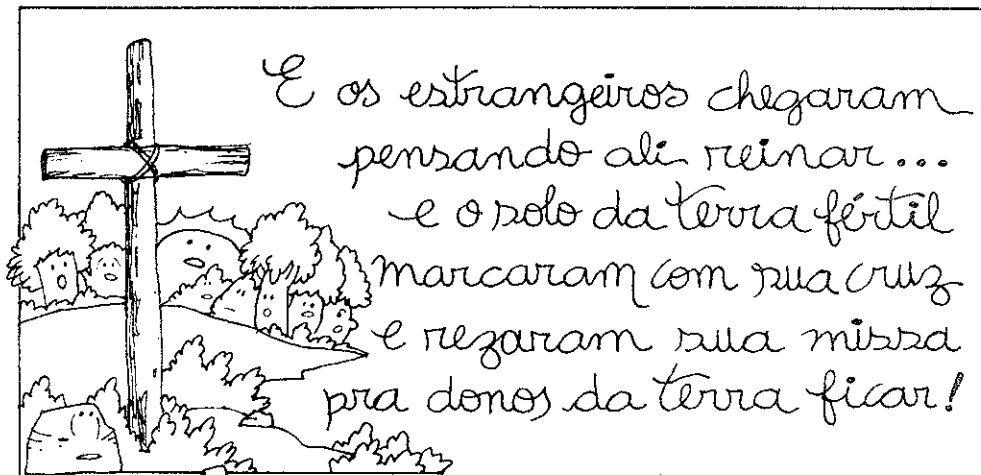 E os estrangeiros chegaram
pensando ali reinar...
e o solo da terra fértil
marcaram com sua cruz
e rezaram sua missa
pra donos da terra ficar!